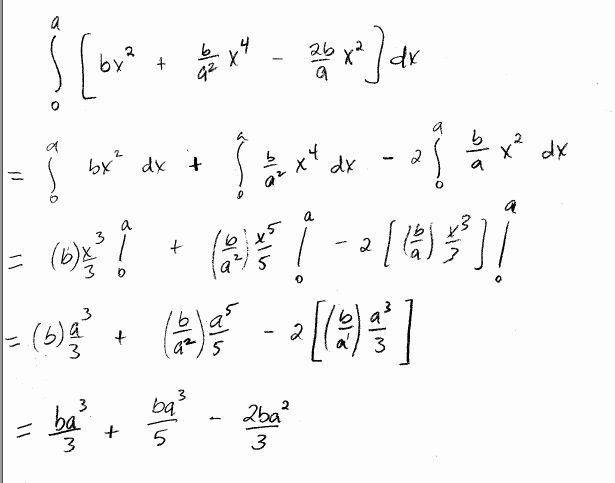 ∫₀ᵃ [ bx² + b/a² x⁴ - 2b/a x² ] dx
= ∫₀ᵃ bx² dx + ∫₀ᵃ b/a² x⁴ dx - 2 ∫₀ᵃ b/a x² dx
= (b) x³/3 |₀ᵃ + (b/a²) x⁵/5 |₀ᵃ - 2 [ (b/a) x³/3 ] |₀ᵃ
= (b) a³/3 + (b/a²) a⁵/5 - 2 [ (b/a¹) a³/3 ]
= ba³/3 + ba³/5 - 2ba²/3